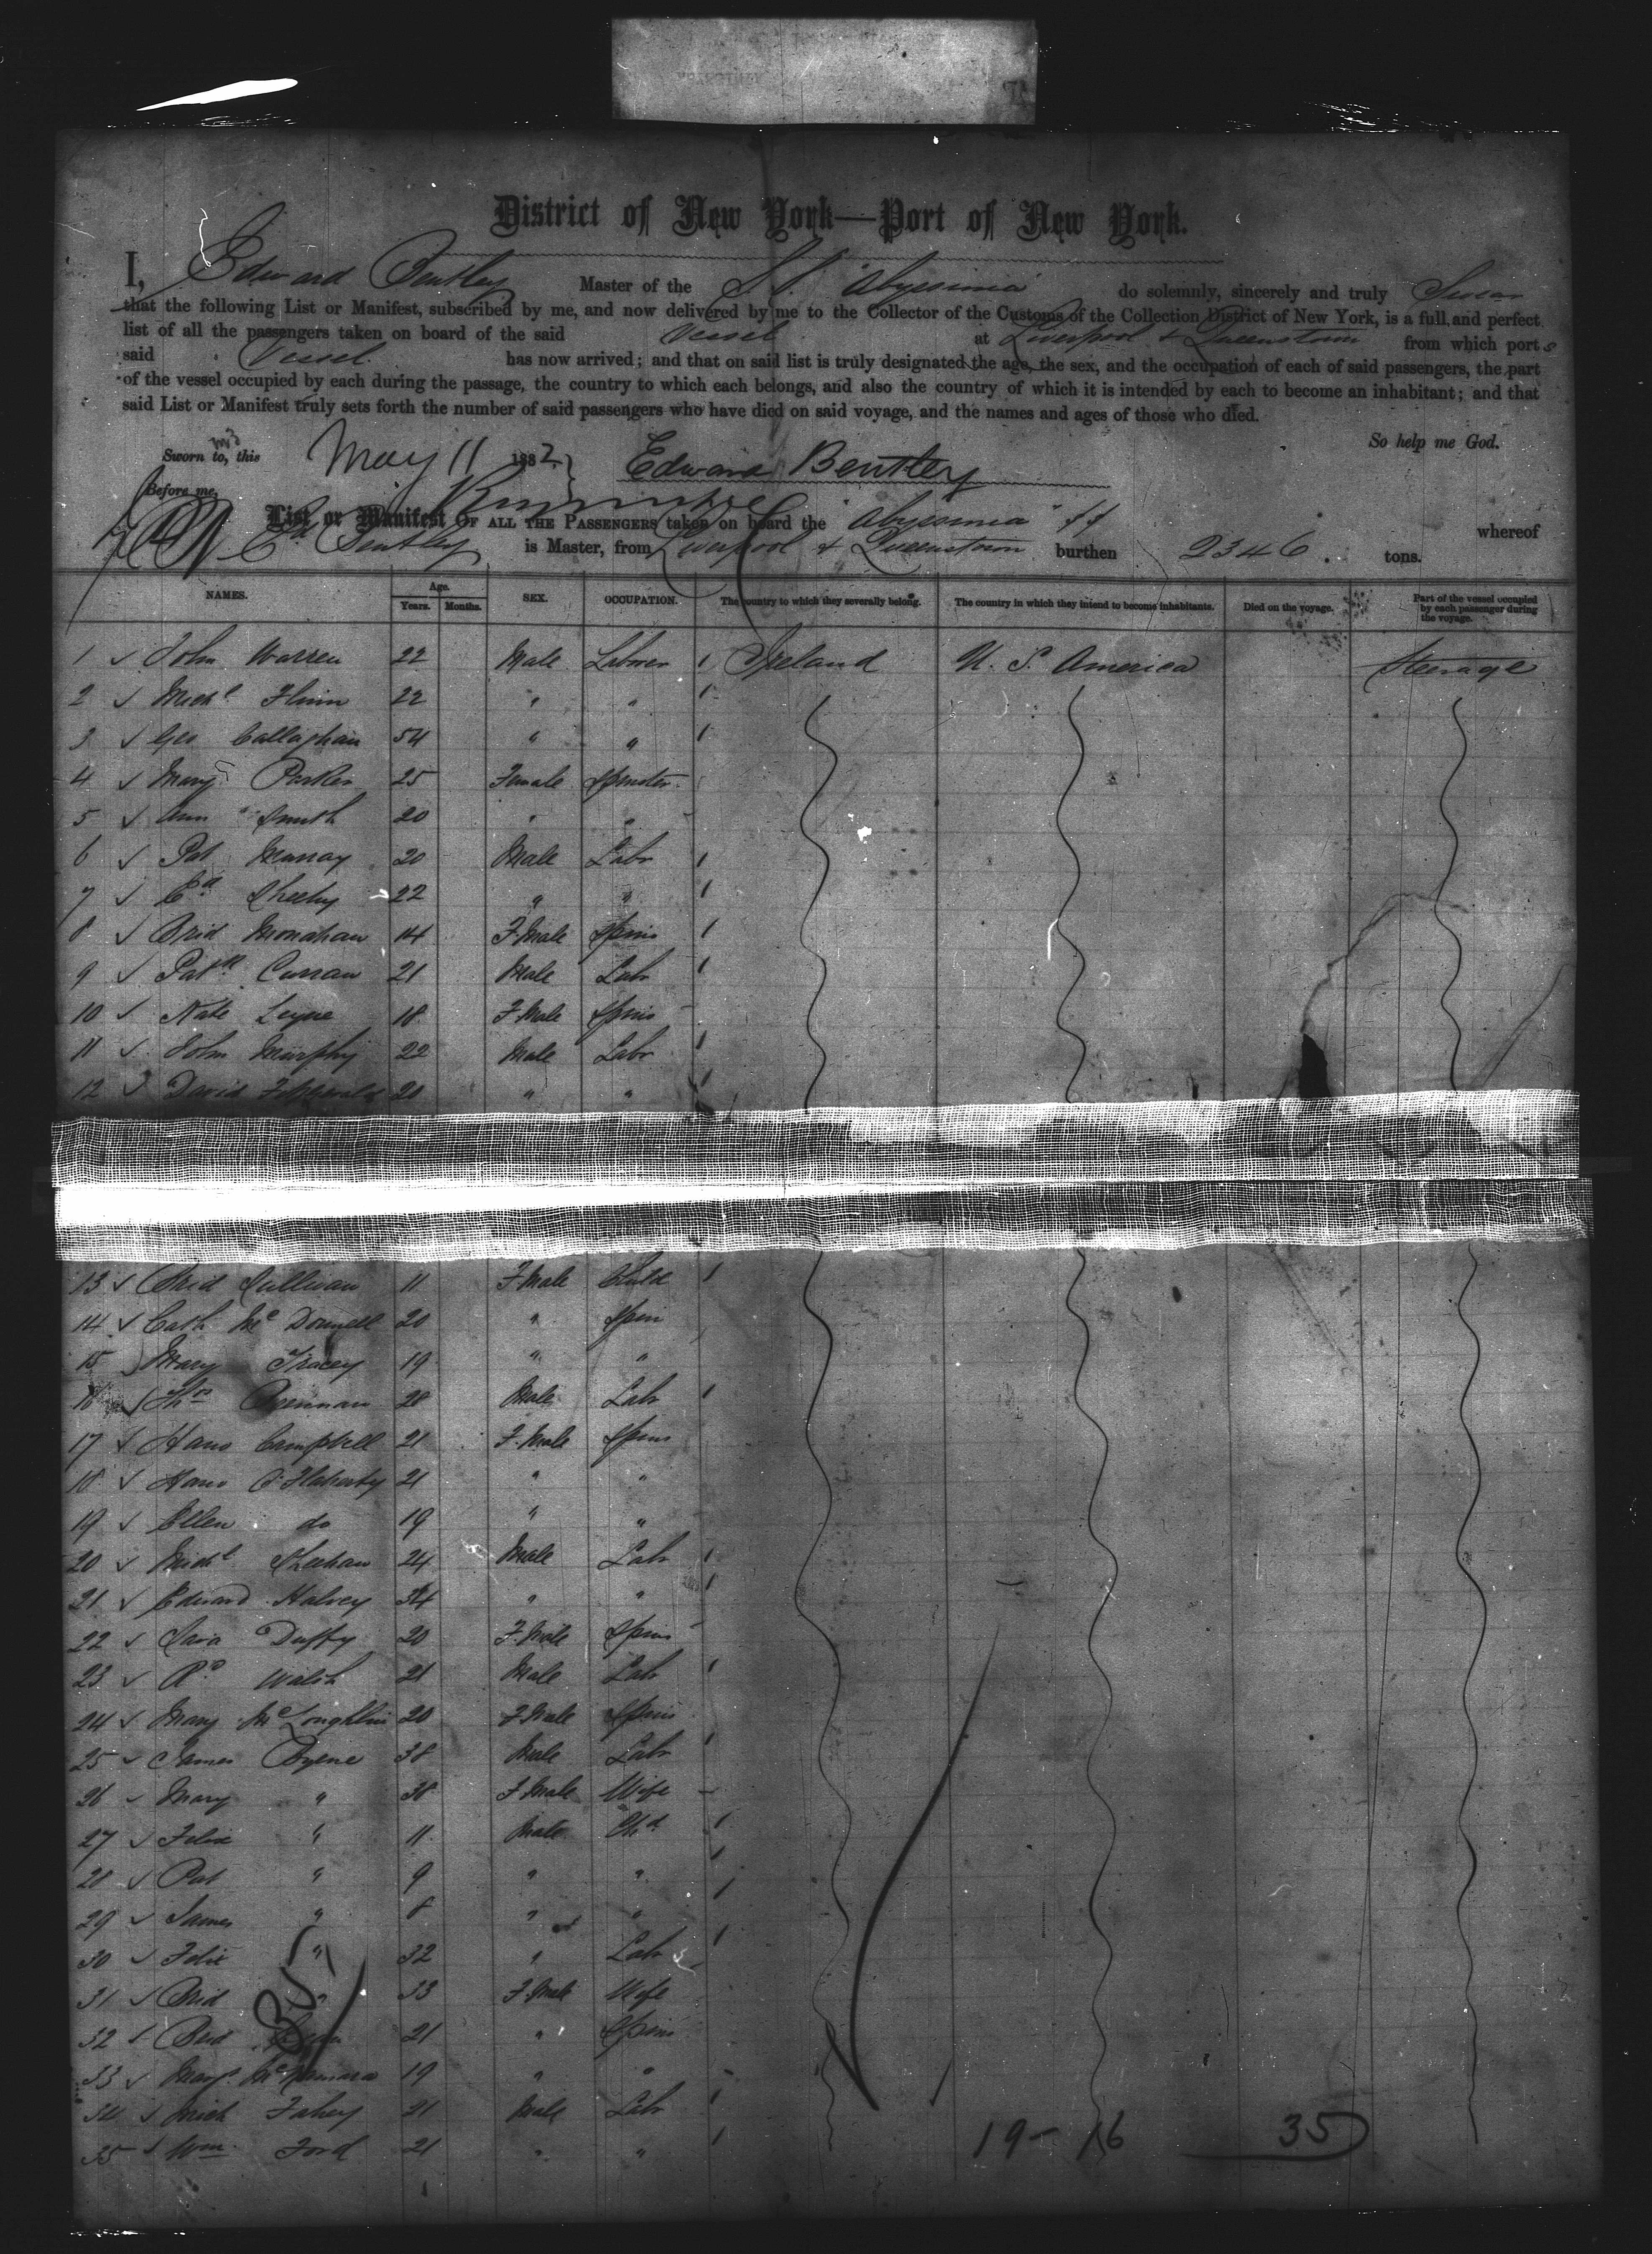 District of New York—Port of New York.
I, Edward Bentley Master of the S.S. "Abyssinia" do solemnly, sincerely and truly Swear
that the following List or Manifest, subscribed by me, and now delivered by me to the Collector of the Customs of the Collection District of New York, is a full and perfect
list of all the passengers taken on board of the said Vessel at Liverpool & Queenstown from which ports
said Vessel has now arrived; and that on said list is truly designated the age, the sex, and the occupation of each of said passengers, the part
of the vessel occupied by each during the passage, the country to which each belongs, and also the country of which it is intended by each to become an inhabitant; and that
said List or Manifest truly sets forth the number of said passengers who have died on said voyage, and the names and ages of those who died.
So help me God.
Sworn to, this May 11 1882 Edward Bentley
Before me,
List or Manifest OF ALL THE PASSENGERS taken on board the "Abyssinia" whereof
Ed Bentley is Master, from Liverpool & Queenstown burthen 2346 tons.
NAMES. Age. Years. Months. SEX. OCCUPATION. The country to which they severally belong. The country in which they intend to become inhabitants. Died on the voyage. Part of the vessel occupied by each passenger during the voyage.
1 ✓ John Warren 22 Male Laborer 1 Ireland U. S. America Steerage
2 ✓ Michl Flinn 22 " " 1
3 ✓ Geo Callaghan 54 " " 1
4 ✓ Mary Parker 25 Female Spinster
5 ✓ Ann Smith 20 " "
6 ✓ Pat Murray 20 Male Labr 1
7 ✓ Ed Sheehy 22 " " 1
8 ✓ Brid Monahan 14 F.Male Spins 1
9 ✓ Patk Curran 21 Male Labr 1
10 ✓ Kate Leyne 18 F.Male Spins -
11 ✓ John Murphy 22 Male Labr 1
12 ✓ David Fitzgerald 20 " " 1
13 ✓ Brid Sullivan 11 F.Male Child 1
14 ✓ Cath McDonnell 20 " Spin
15 Mary Tracey 19 " "
16 ✓ Thos Brennan 28 Male Labr 1
17 ✓ Hano Campbell 21 F.Male Spins
18 ✓ Hano O'Flaherty 21 " "
19 ✓ Ellen do 19 " "
20 ✓ Michl Sheehan 24 Male Labr 1
21 ✓ Edward Halvey 34 " " 1
22 ✓ Sara Duffy 20 F.Male Spins -
23 ✓ Rd Walsh 21 Male Labr 1
24 ✓ Mary McLoughlin 20 F.Male Spins
25 ✓ James Byrne 38 Male Labr 1
26 ✓ Mary " 38 F.Male Wife -
27 ✓ Felix " 11 Male Chd 1
28 ✓ Pat " 9 " " 1
29 ✓ James " 8 " " 1
30 ✓ Felix " 32 " Labr 1
31 ✓ Brid " 33 F.Male Wife
32 ✓ Brid 21 " Spins
33 ✓ Mary McNamara 19 " " -
34 ✓ Mich Fahey 21 Male Labr 1
35 ✓ Wm Ford 21 " " 1
19 - 16 35